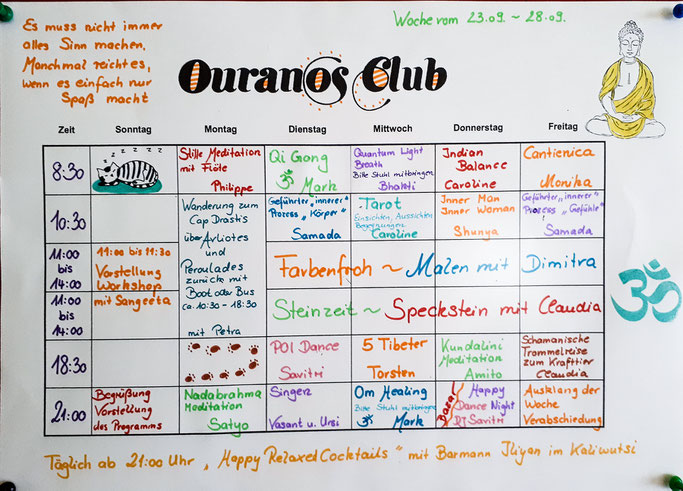 Es muss nicht immer
alles Sinn machen.
Manchmal reicht es,
wenn es einfach nur
Spaß macht
Woche vom 23.09. ~ 28.09.
Ouranos Club
Zeit Sonntag Montag Dienstag Mittwoch Donnerstag Freitag
8:30
z z z z z z
Stille Meditation
mit Flöte
Philippe
Qi Gong
ॐ Mark
Quantum Light
Breath
Bitte Stuhl mitbringen
Bhakti
Indian
Balance
Caroline
Cantienica
Monika
10:30
Wanderung zum
Cap Drastis
über Avliotes
und
Peroulades
zurück mit
Boot oder Bus
ca. 10:30 - 18:30
mit Petra
Geführter "innerer"
Prozess "Körper"
Samada
Tarot
Einsichten, Aussichten
Begegnungen
Caroline
Inner Man
Inner Woman
Shunya
Geführter "innerer"
Prozess "Gefühle"
Samada
11:00
bis
14:00
11:00 bis 11:30
Vorstellung
Workshop
mit Sangeeta
Farbenfroh ~ Malen mit Dimitra
11:00
bis
14:00
Steinzeit ~ Speckstein mit Claudia
18:30
POI Dance
Savitri
5 Tibeter
Torsten
Kundalini
Meditation
Amito
Schamanische
Trommelreise
zum Krafttier
Claudia
21:00
Begrüßung
Vorstellung
des Programms
Nadabrahma
Meditation
Satyo
Singen
Vasant u. Ursi
Om Healing
Bitte Stuhl mitbringen
ॐ Mark
Basar
Happy
Dance Night
DJ Savitri
Ausklang der
Woche
Verabschiedung
ॐ
Täglich ab 21:00 Uhr "Happy Relaxed Cocktails" mit Barmann Iliyan im Kaliwutsi